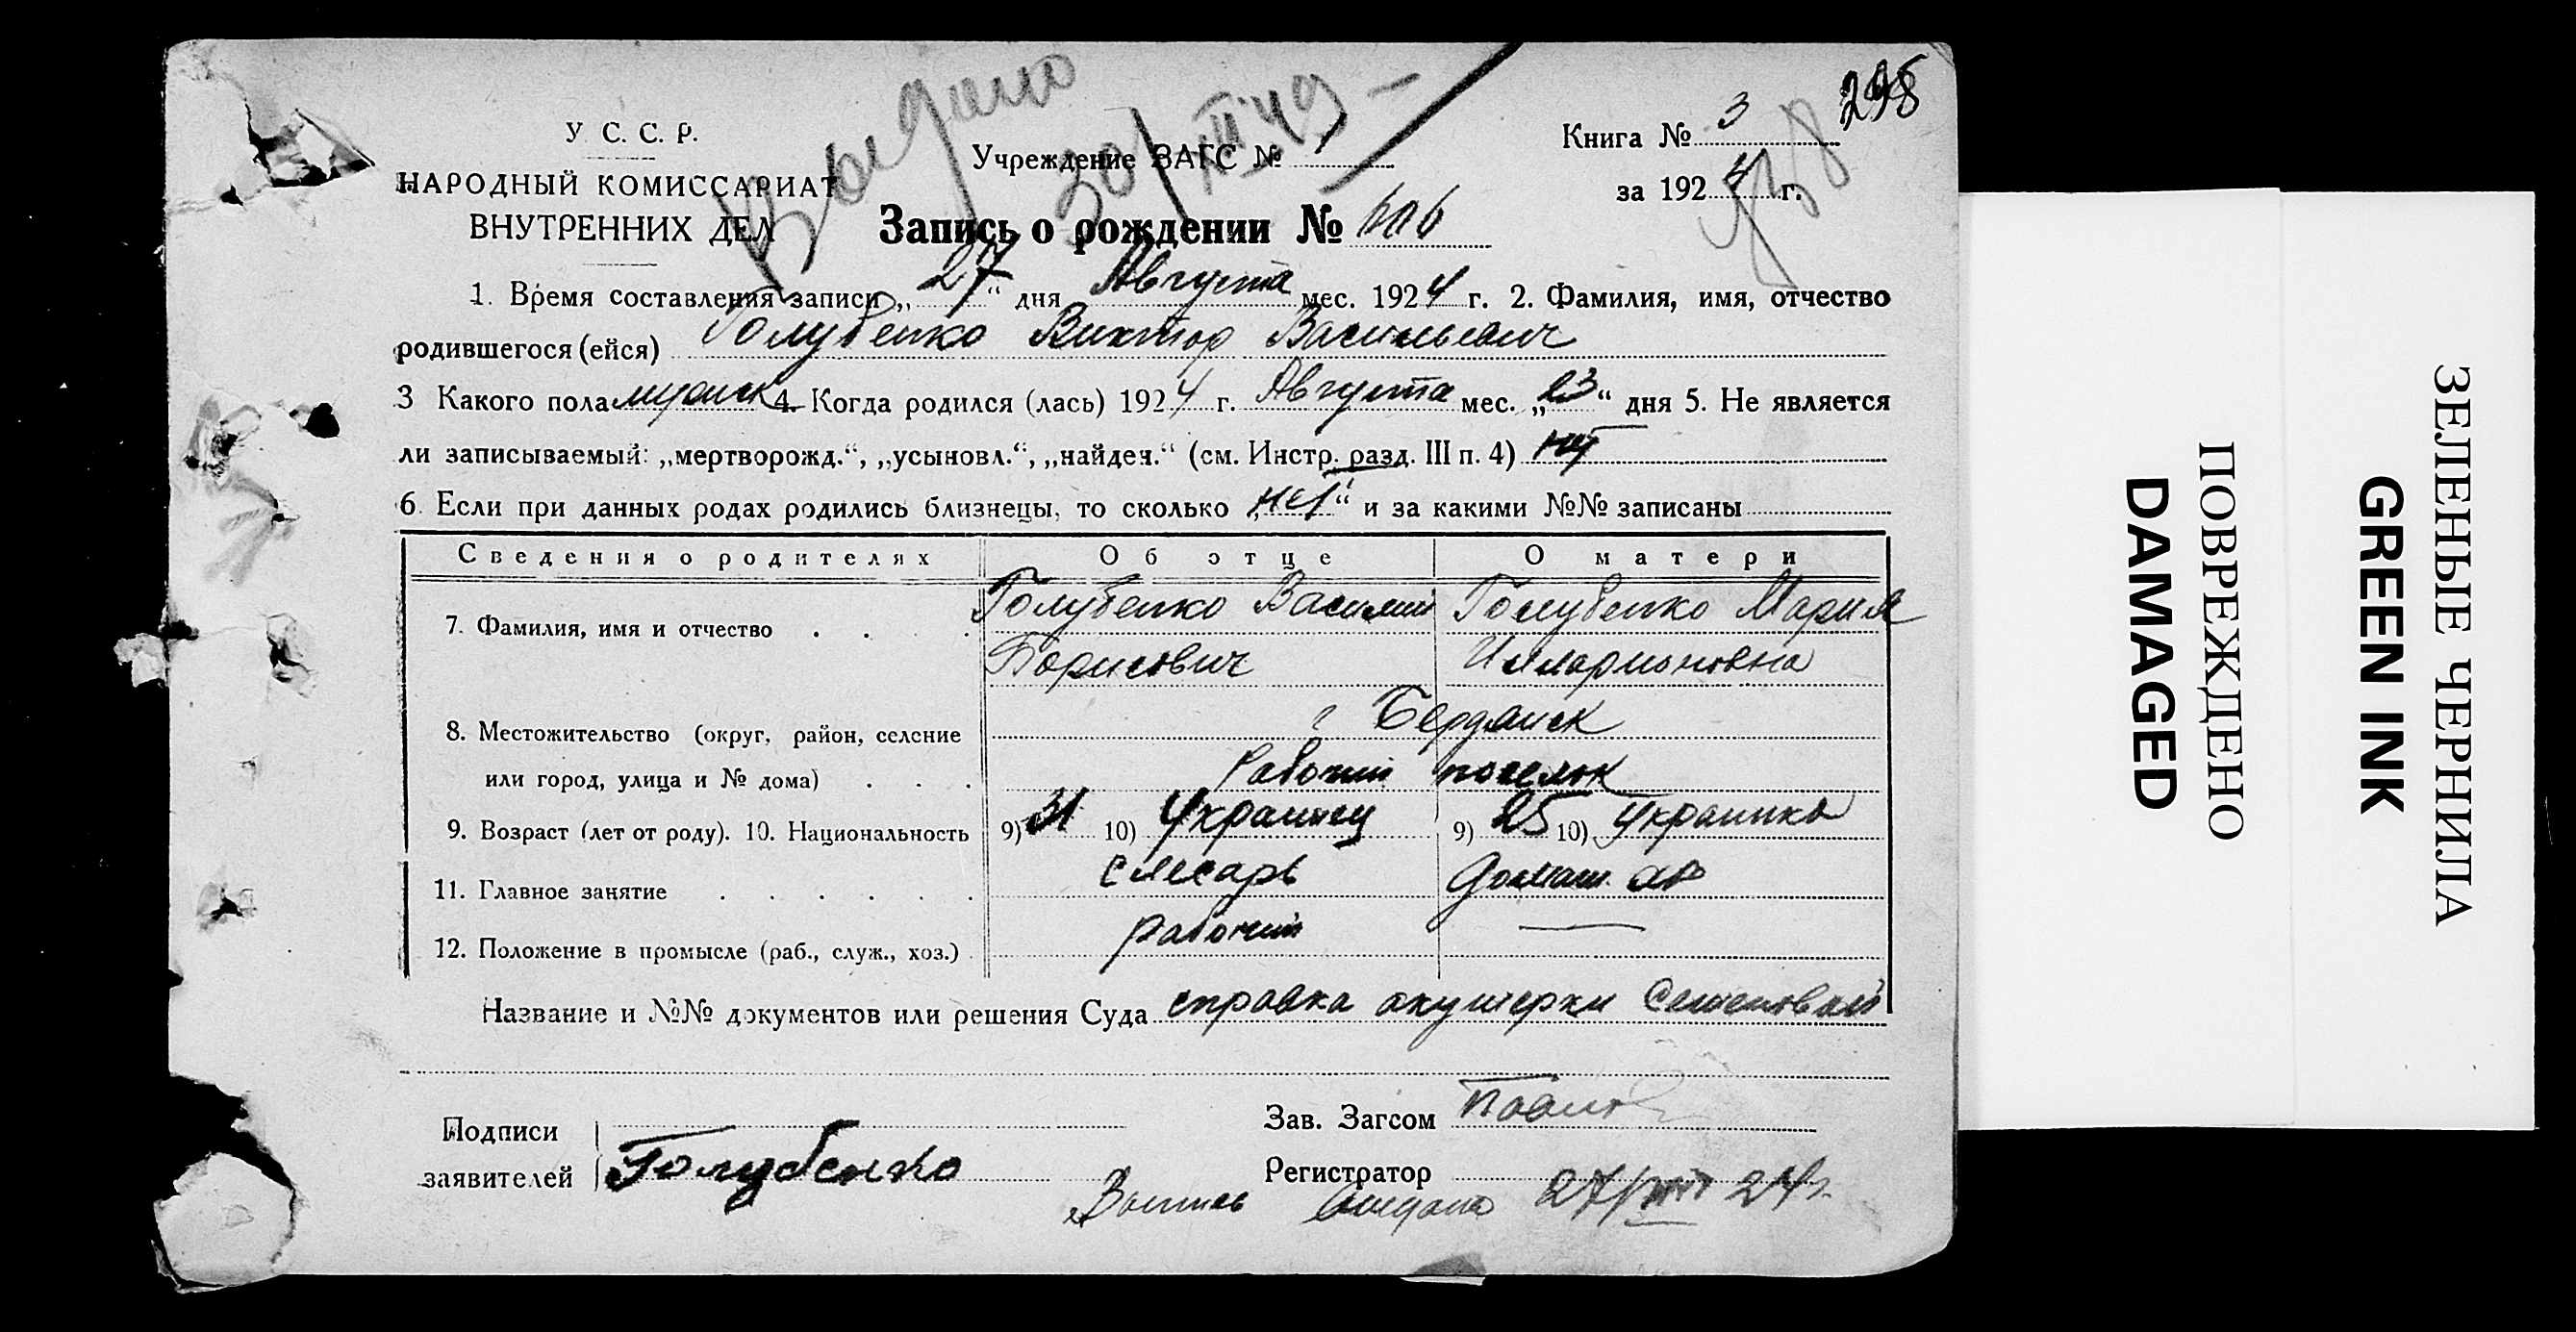 298
Выдано
30/XII 49
У. С. С. Р.
НАРОДНЫЙ КОМИССАРИАТ
ВНУТРЕННИХ ДЕЛ
Учреждение ЗАГС № 1
Книга № 3
за 1924 г.
Запись о рождении № 606
1. Время составления записи „27“ дня Августа мес. 1924 г. 2. Фамилия, имя, отчество
родившегося (ейся) Голубенко Виктор Васильевич
3 Какого пола мужск 4. Когда родился (лась) 1924 г. Августа мес. „23“ дня 5. Не является
ли записываемый: „мертворожд.“, „усыновл.“, „найден.“ (см. Инстр. разд. III п. 4) нет
6. Если при данных родах родились близнецы, то сколько „нет“ и за какими №№ записаны
Сведения о родителях Об отце О матери
7. Фамилия, имя и отчество Голубенко Василий Голубенко Мария
Борисович Илларионовна
8. Местожительство (округ, район, селение г Бердянск
или город, улица и № дома) Рабочий поселок
9. Возраст (лет от роду). 10. Национальность 9) 31 10) Украинец 9) 25 10) Украинка
11. Главное занятие слесарь домаш. хоз
12. Положение в промысле (раб., служ., хоз.) рабочий —
Название и №№ документов или решения Суда справка акушерки Семеновой
Подписи
заявителей Голубенко
Зав. Загсом
Регистратор
Выпись выдана 27/VIII 24 г.
ПОВРЕЖДЕНО
DAMAGED
ЗЕЛЕНЫЕ ЧЕРНИЛА
GREEN INK